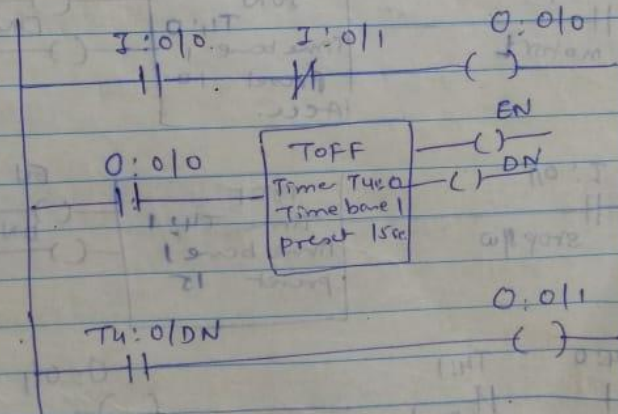 I:0/0 I:0/1 O:0/0
EN
O:0/0 TOFF
DN
Time T4:0
Time base 1
preset 15sec
O:0/1
T4:0/DN